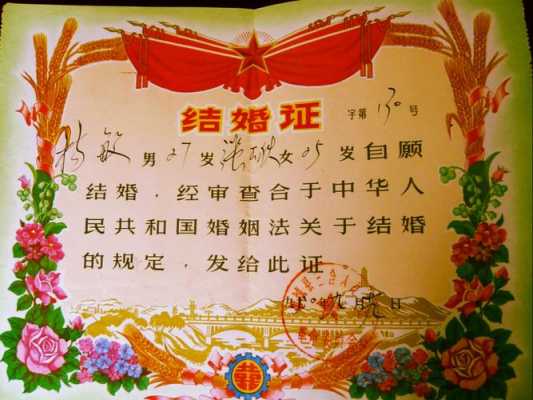 结婚证
字第130号
杨敏 男27岁 张 女25岁自愿
结婚，经审查合于中华人
民共和国婚姻法关于结婚
的规定，发给此证
年 月 日